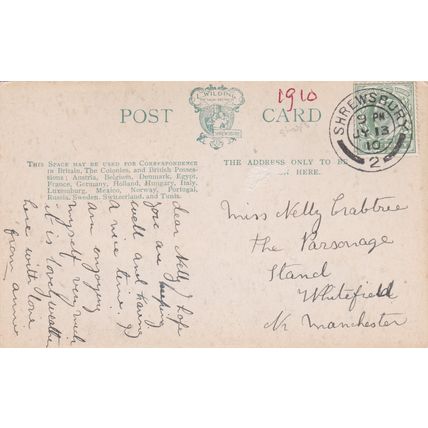 1910
L. WILDING
SHREWSBURY
POST CARD
SHREWSBURY
9 PM
JY 13
10
2
THIS SPACE MAY BE USED FOR CORRESPONDENCE
in Britain, The Colonies, and British Posses-
sions; Austria, Belgium, Denmark, Egypt,
France, Germany, Holland, Hungary, Italy,
Luxemburg, Mexico, Norway, Portugal,
Russia, Sweden, Switzerland, and Tunis.
THE ADDRESS ONLY TO BE
HERE.
Dear Nelly I hope
you are keeping
well and having
a nice time. I
am enjoying
myself very much
it is lovely weather
here with love
from Annie
Miss Nelly Crabtree
The Parsonage
Stand
Whitefield
Nr Manchester